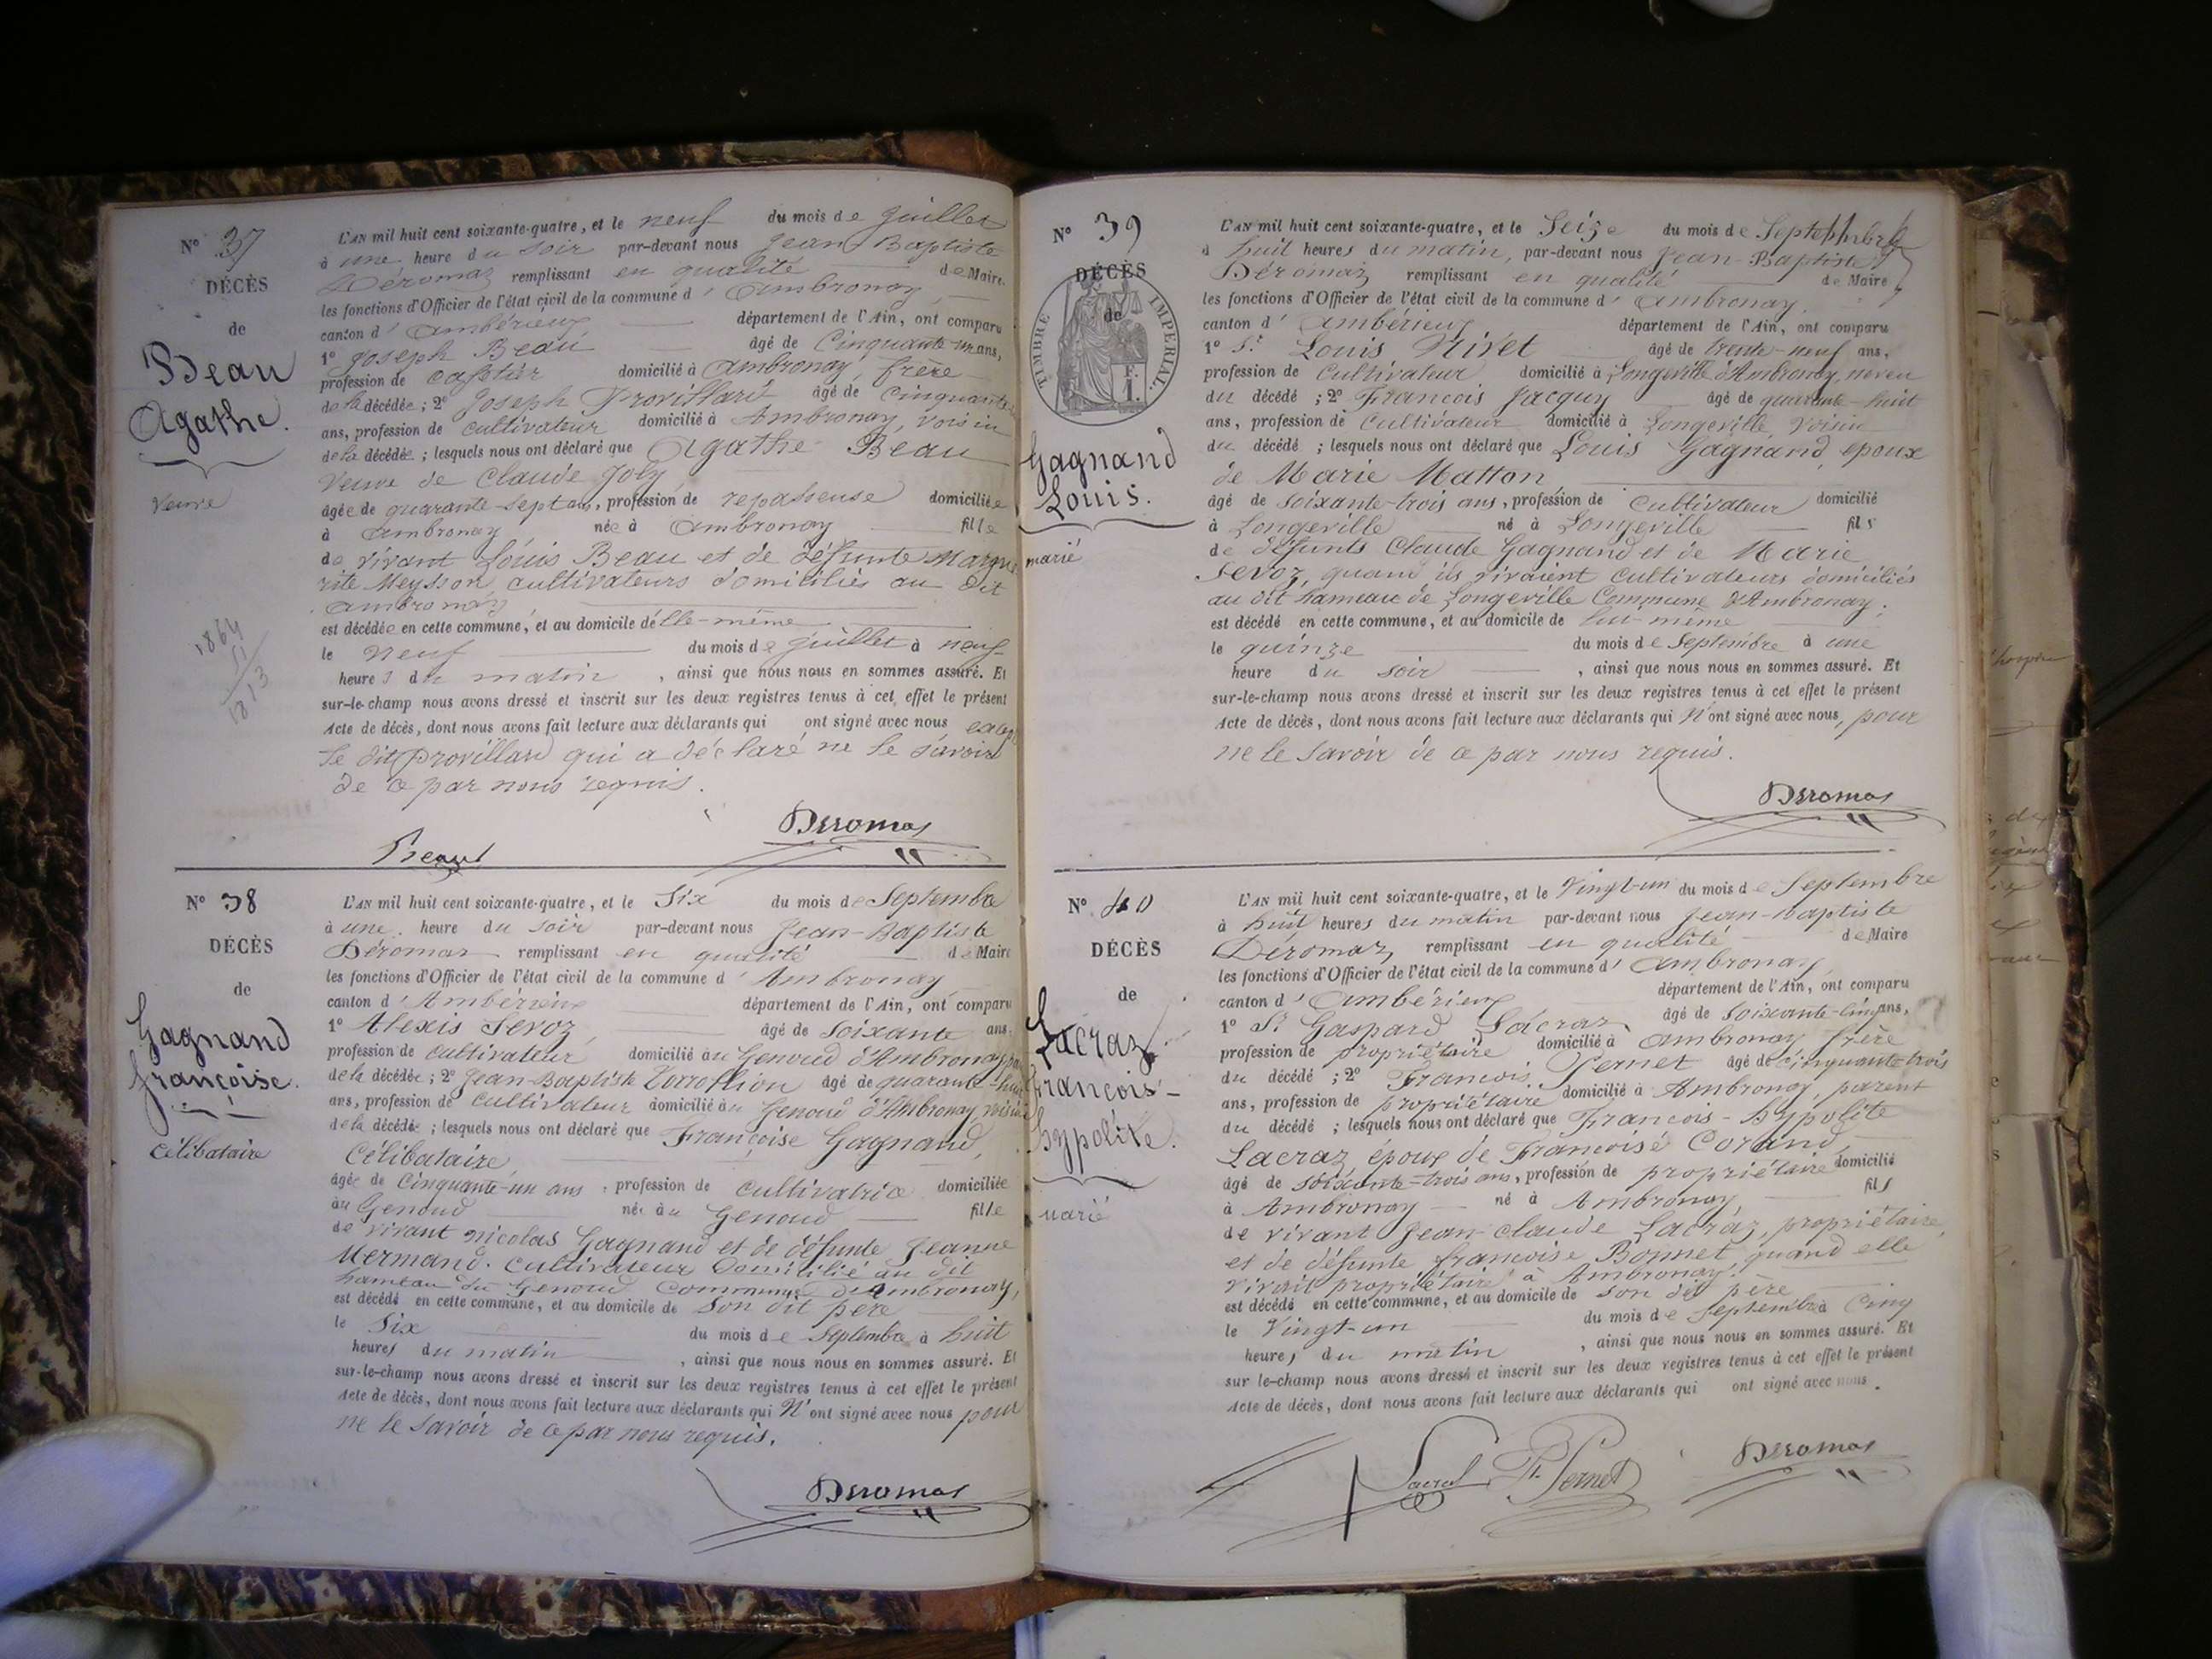 N° 37
DÉCÈS
de
Beau
Agathe.
veuve
1864
51
1813
L'AN mil huit cent soixante-quatre, et le neuf du mois de juillet
à une heure du soir par-devant nous Jean Baptiste
Déromaz remplissant en qualité de Maire
les fonctions d'Officier de l'état civil de la commune d'Ambronay
canton d'Ambérieux département de l'Ain, ont comparu
1° Joseph Beau âgé de Cinquante-un ans,
profession de domicilié à Ambronay, frère
de la décédée; 2° Joseph Provillard âgé de cinquante
ans, profession de cultivateur domicilié à Ambronay, voisin
de la décédée; lesquels nous ont déclaré que Agathe Beau
veuve de Claude Joly
âgée de quarante-sept ans, profession de repasseuse domiciliée
à Ambronay née à Ambronay fille
de vivant Louis Beau et de défunte Margue
rite Meysson cultivateurs domiciliés au dit
Ambronay
est décédée en cette commune, et au domicile d'elle-même
le neuf du mois de juillet à neuf
heures du matin, ainsi que nous nous en sommes assuré. Et
sur-le-champ nous avons dressé et inscrit sur les deux registres tenus à cet effet le présent
Acte de décès, dont nous avons fait lecture aux déclarants qui ont signé avec nous
le dit Provillard qui a déclaré ne le savoir
de ce par nous requis.
Beau Deromas
N° 38
DÉCÈS
de
Gagnand
françoise.
Célibataire
L'AN mil huit cent soixante-quatre, et le Six du mois de Septembre
à une heure du soir par-devant nous Jean-Baptiste
Déromas remplissant en qualité de Maire
les fonctions d'Officier de l'état civil de la commune d'Ambronay
canton d'Ambérieux département de l'Ain, ont comparu
1° Alexis Sevoz, âgé de soixante ans,
profession de cultivateur domicilié au Genoud d'Ambronay
de la décédée; 2° Jean-Baptiste âgé de quarante-huit
ans, profession de cultivateur domicilié au Genoud d'Ambronay voisin
de la décédée; lesquels nous ont déclaré que Françoise Gagnand,
Célibataire,
âgée de Cinquante-un ans, profession de cultivatrice domiciliée
au Genoud née au Genoud fille
de vivant nicolas Gagnand et de défunte Jeanne
Mermand. Cultivateur Domicilié au dit
hameau du Genoud Commune d'Ambronay,
est décédé en cette commune, et au domicile de son dit père
le Six du mois de Septembre à huit
heures du matin, ainsi que nous nous en sommes assuré. Et
sur-le-champ nous avons dressé et inscrit sur les deux registres tenus à cet effet le présent
Acte de décès, dont nous avons fait lecture aux déclarants qui N'ont signé avec nous pour
ne le savoir de ce par nous requis.
Deromas
N° 39
DÉCÈS
de
TIMBRE IMPÉRIAL
F.
1.
Gagnand
Louis.
marié
L'AN mil huit cent soixante-quatre, et le Seize du mois de Septembre
à huit heures du matin, par-devant nous Jean-Baptiste
Déromaz remplissant en qualité de Maire
les fonctions d'Officier de l'état civil de la commune d'Ambronay
canton d'Ambérieux département de l'Ain, ont comparu
1° Sr Louis Nivet âgé de trente-neuf ans,
profession de Cultivateur domicilié à Longeville d'Ambronay, neveu
du décédé; 2° François Jacquy âgé de quarante-huit
ans, profession de Cultivateur domicilié à Longeville voisin
du décédé; lesquels nous ont déclaré que Louis Gagnand, époux
de Marie Matton
âgé de soixante-trois ans, profession de Cultivateur domicilié
à Longeville né à Longeville fils
de défunts Claude Gagnand et de Marie
Sevoz, quand ils vivaient cultivateurs domiciliés
au dit hameau de Longeville Commune d'Ambronay.
est décédé en cette commune, et au domicile de lui-même
le quinze du mois de Septembre à une
heure du soir, ainsi que nous nous en sommes assuré. Et
sur-le-champ nous avons dressé et inscrit sur les deux registres tenus à cet effet le présent
Acte de décès, dont nous avons fait lecture aux déclarants qui N'ont signé avec nous, pour
ne le savoir de ce par nous requis.
Deromas
N° 40
DÉCÈS
de
Lacraz
françois-
hypolite.
marié
L'AN mil huit cent soixante-quatre, et le Vingt-un du mois de Septembre
à huit heures du matin par-devant nous Jean-Baptiste
Déromaz remplissant en qualité de Maire
les fonctions d'Officier de l'état civil de la commune d'Ambronay
canton d'Ambérieux département de l'Ain, ont comparu
1° Sr Gaspard Lacraz âgé de soixante-cinq ans,
profession de propriétaire domicilié à Ambronay frère
du décédé; 2° François Pernet âgé de cinquante-trois
ans, profession de propriétaire domicilié à Ambronay, parent
du décédé; lesquels nous ont déclaré que François-hypolite
Lacraz époux de Françoise Corand,
âgé de soixante-trois ans, profession de propriétaire domicilié
à Ambronay né à Ambronay fils
de vivant Jean-claude Lacraz, propriétaire
et de défunte françoise Bonnet, quand elle
vivait propriétaire à Ambronay.
est décédé en cette commune, et au domicile de son dit père
le Vingt-un du mois de Septembre à Cinq
heures du matin, ainsi que nous nous en sommes assuré. Et
sur le-champ nous avons dressé et inscrit sur les deux registres tenus à cet effet le présent
Acte de décès, dont nous avons fait lecture aux déclarants qui ont signé avec nous.
Lacraz Pernet Deromas